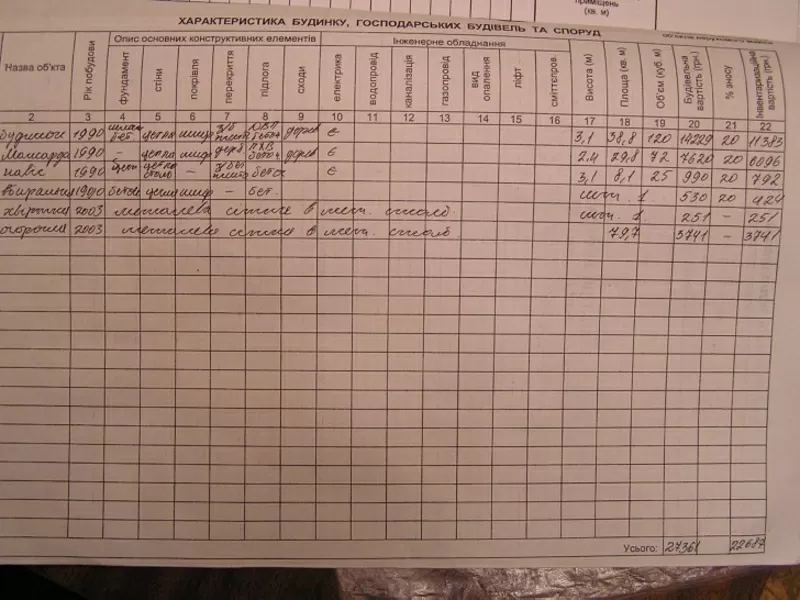 приміщень
(кв. м)
ХАРАКТЕРИСТИКА БУДИНКУ, ГОСПОДАРСЬКИХ БУДІВЕЛЬ ТА СПОРУД
Назва об'єкта Рік побудови Опис основних конструктивних елементів Інженерне обладнання Висота (м) Площа (кв. м) Об'єм (куб. м) Будівельна вартість (грн.) % зносу Інвентаризаційна вартість (грн.)
фундамент стіни покрівля перекриття підлога сходи електрика водопровід каналізація газопровід вид опалення ліфт сміттєпров.
2 3 4 5 6 7 8 9 10 11 12 13 14 15 16 17 18 19 20 21 22
будинок 1990 цегла шифр дерев є 3,1 38,8 120 14229 20 11383
Мансарда 1990 - цегла шифр дерев є 2.4 29,8 72 7620 20 6096
навіс 1990 - є 3,1 8,1 25 990 20 792
1990 бетон цегла шифр - бет. 1 530 20 424
хвіртка 2003 металева сітка в мет. 1 251 - 251
огорожа 2003 металева сітка в мет. 79,7 3741 - 3741
Усього: 27361 22687